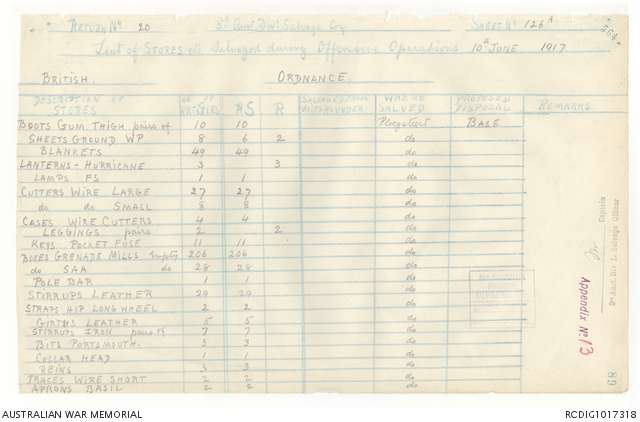 RETURN No 20 3rd Aust. Divl Salvage Coy SHEET No 126A
List of STORES etc Salvaged during Offensive Operations 10th JUNE 1917
BRITISH. ORDNANCE.
DESCRIPTION OF STORES No OF ARTICLES S R WHERE SALVED PROPOSED DISPOSAL REMARKS
BOOTS GUM THIGH pairs of 10 10 Ploegsteert BASE
SHEETS GROUND WP 8 6 2 do
BLANKETS 49 49 do
LANTERNS - HURRICANE 3 3 do
LAMPS FS 1 1 do
CUTTERS WIRE LARGE 27 27 do
do do SMALL 8 8 do
CASES WIRE CUTTERS 4 4 do
LEGGINGS pairs 2 2 do
KEYS POCKET FUSE 11 11 do
BOXES GRENADE MILLS Empty 206 206 do
do SAA do 28 28 do
POLE BAR 1 1 do
STIRRUPS LEATHER 29 29 do
STRAPS HIP LONG WHEEL 2 2 do
GIRTHS LEATHER 5 5 do
STIRRUPS IRON pairs of 7 7 do
BITS PORTSMOUTH. 3 3 do
COLLAR HEAD 1 1 do
REINS 3 3 do
TRACES WIRE SHORT 2 2 do
APRONS BASIL 2 2 do
Captain
3rd Aust. Div l. Salvage Officer
Appendix No 13
68
AUSTRALIAN WAR MEMORIAL RCDIG1017318